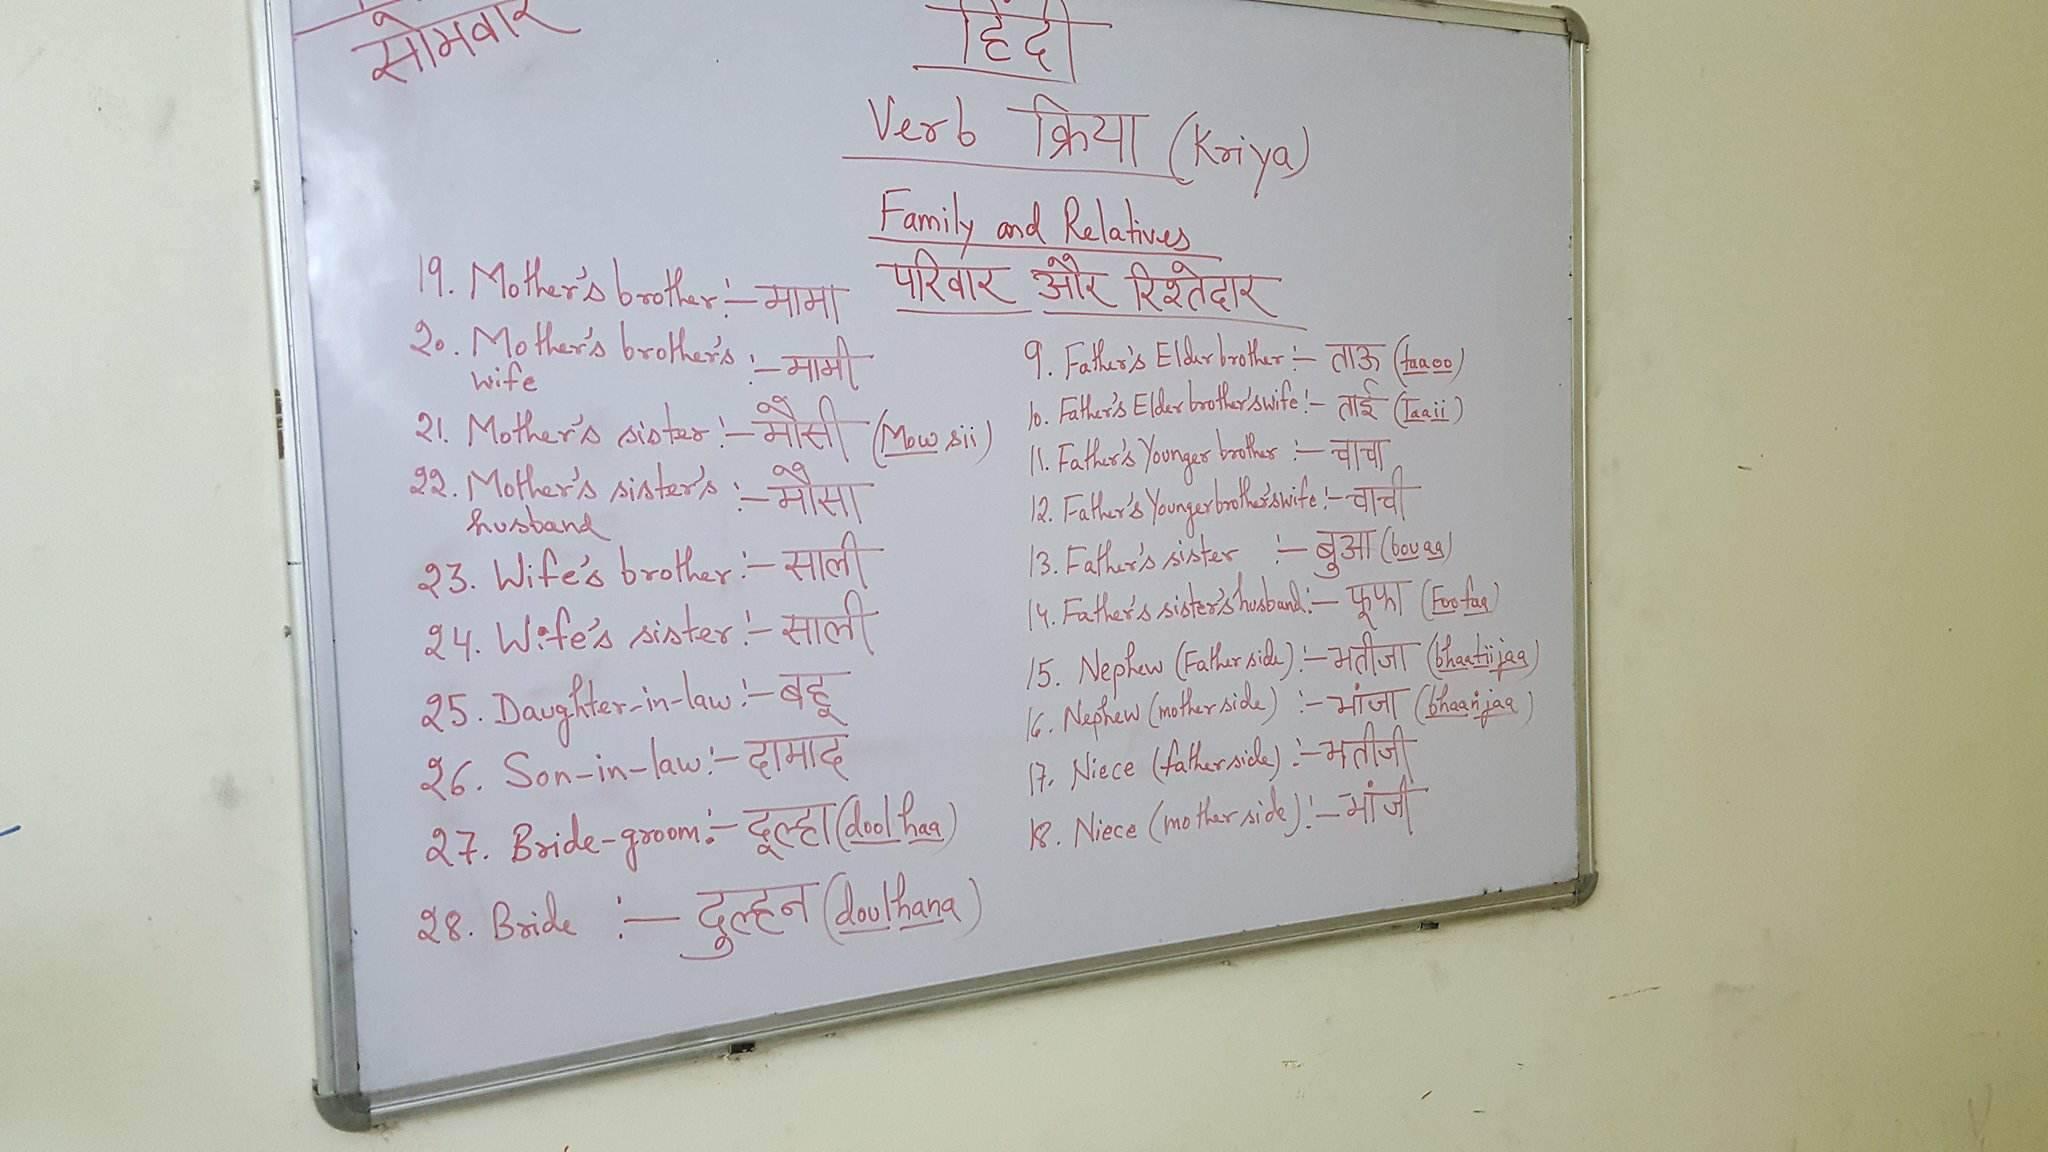 सोमवार
हिंदी
Verb क्रिया (Kriya)
Family and Relatives
परिवार और रिश्तेदार
19. Mother's brother :- मामा
20. Mother's brother's :- मामी
wife
21. Mother's sister :- मौसी (Mow sii)
22. Mother's sister's :- मौसा
husband
23. Wife's brother :- साली
24. Wife's sister :- साली
25. Daughter-in-law :- बहू
26. Son-in-law :- दामाद
27. Bride-groom :- दूल्हा (doolhaa)
28. Bride :- दुल्हन (doulhana)
9. Father's Elder brother :- ताऊ (taaoo)
10. Father's Elder brother's wife :- ताई (Taaii)
11. Father's Younger brother :- चाचा
12. Father's Younger brother's wife :- चाची
13. Father's sister :- बुआ (bouaa)
14. Father's sister's husband :- फूफा (Foofaa)
15. Nephew (Father side) :- भतीजा (bhaatiijaa)
16. Nephew (mother side) :- भांजा (bhaanjaa)
17. Niece (father side) :- भतीजी
18. Niece (mother side) :- भांजी